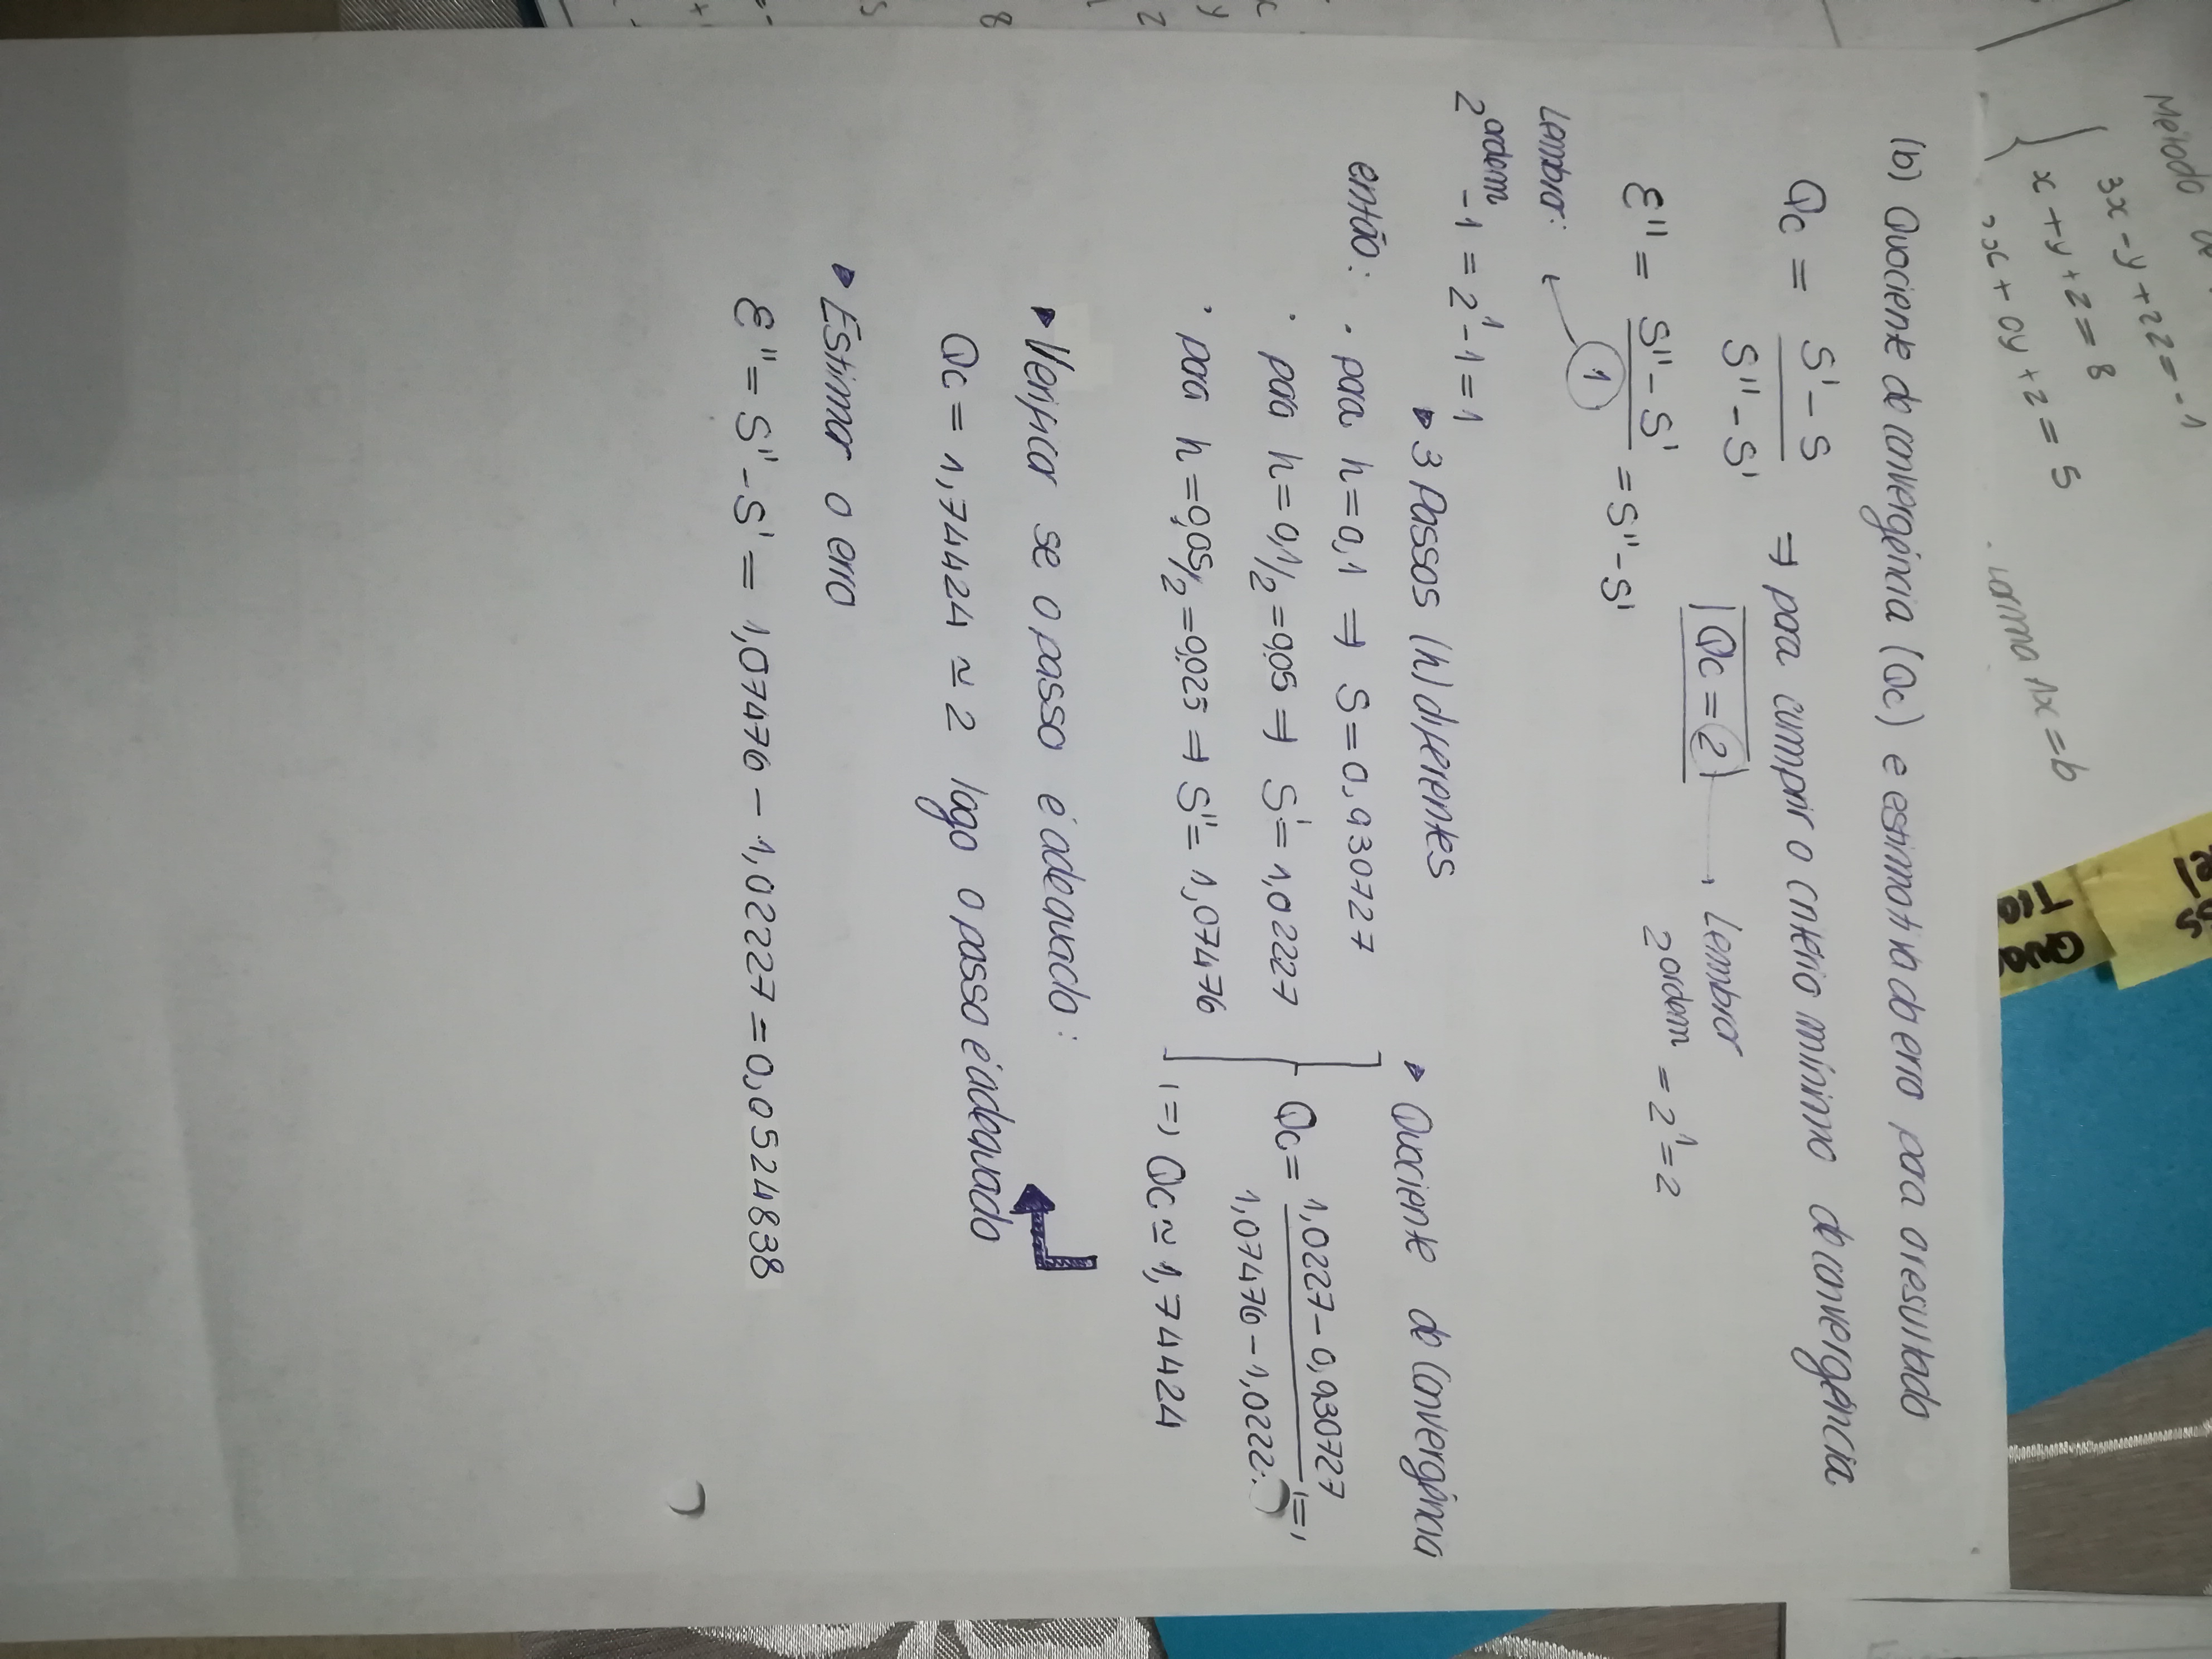 Método de
3x - y + 2z = -1
x + y + z = 8
x + 0y + z = 5
forma Ax = b
(b) Quociente de convergência (Qc) e estimativa do erro para o resultado
Qc = S' - S / S'' - S' ⇒ para cumprir o critério mínimo de convergência
|Qc = 2| → Lembrar
2^ordem = 2^1 = 2
ε'' = S'' - S' / 1 = S'' - S'
Lembrar:
2^ordem - 1 = 2^1 - 1 = 1
▶ 3 Passos (h) diferentes
então: · para h = 0,1 ⇒ S = 0,930727
· para h = 0,1/2 = 0,05 ⇒ S' = 1,02227
· para h = 0,05/2 = 0,025 ⇒ S'' = 1,07476
▶ Quociente de Convergência
Qc = 1,0227 - 0,930727 / 1,07476 - 1,0222 (=)
(=) Qc ≃ 1,74424
▶ Verificar se o passo é adequado:
Qc = 1,74424 ≃ 2 logo o passo é adequado
▶ Estimar o erro
ε'' = S'' - S' = 1,07476 - 1,02227 = 0,0524838